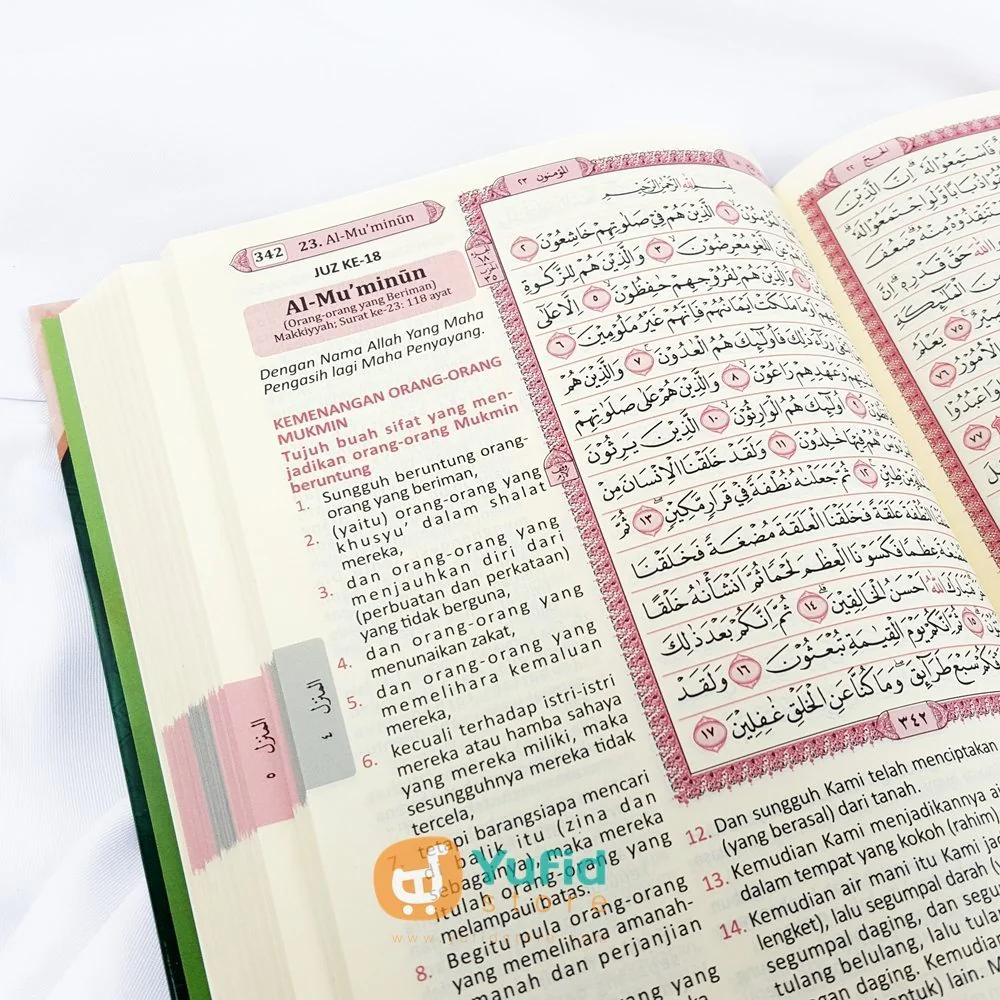 342 23. Al-Mu'minūn
JUZ KE-18
Al-Mu'minūn
(Orang-orang yang Beriman)
Makkiyyah; Surat ke-23: 118 ayat
Dengan Nama Allah Yang Maha
Pengasih lagi Maha Penyayang.
KEMENANGAN ORANG-ORANG
MUKMIN
Tujuh buah sifat yang men-
jadikan orang-orang Mukmin
beruntung
1. Sungguh beruntung orang-
orang yang beriman,
2. (yaitu) orang-orang yang
khusyu' dalam shalat
mereka,
3. dan orang-orang yang
menjauhkan diri dari
(perbuatan dan perkataan)
yang tidak berguna,
4. dan orang-orang yang
menunaikan zakat,
5. dan orang-orang yang
memelihara kemaluan
mereka,
6. kecuali terhadap istri-istri
mereka atau hamba sahaya
yang mereka miliki, maka
sesungguhnya mereka tidak
tercela,
7. tetapi barangsiapa mencari
di balik itu (zina dan
sebagainya), maka mereka
itulah orang-orang yang
melampaui batas.
8. Begitu pula orang-orang
yang memelihara amanah-
amanah dan perjanjian
orang yang
المؤمنون ٢٣
بِسْمِ اللهِ الرَّحْمٰنِ الرَّحِيْمِ
١ الَّذِيْنَ هُمْ فِيْ صَلٰوتِهِمْ خَاشِعُوْنَ ٢
عَنِ اللَّغْوِ مُعْرِضُوْنَ ٣ وَالَّذِيْنَ هُمْ لِلزَّكٰوةِ
وَالَّذِيْنَ هُمْ لِفُرُوْجِهِمْ حٰفِظُوْنَ ٥ اِلَّا عَلٰٓى
اَوْ مَا مَلَكَتْ اَيْمَانُهُمْ فَاِنَّهُمْ غَيْرُ مَلُوْمِيْنَ ٦
وَرَاۤءَ ذٰلِكَ فَاُولٰۤىِٕكَ هُمُ الْعٰدُوْنَ ٧ وَالَّذِيْنَ هُمْ
وَعَهْدِهِمْ رَاعُوْنَ ٨ وَالَّذِيْنَ هُمْ عَلٰى صَلَوٰتِهِمْ
اُولٰۤىِٕكَ هُمُ الْوَارِثُوْنَ ١٠ الَّذِيْنَ يَرِثُوْنَ
هُمْ فِيْهَا خٰلِدُوْنَ ١١ وَلَقَدْ خَلَقْنَا الْاِنْسَانَ مِنْ
مِّنْ طِيْنٍ ١٢ ثُمَّ جَعَلْنٰهُ نُطْفَةً فِيْ قَرَارٍ مَّكِيْنٍ ١٣ ثُمَّ
النُّطْفَةَ عَلَقَةً فَخَلَقْنَا الْعَلَقَةَ مُضْغَةً فَخَلَقْنَا
عِظٰمًا فَكَسَوْنَا الْعِظٰمَ لَحْمًا ثُمَّ اَنْشَأْنٰهُ خَلْقًا
اللّٰهُ اَحْسَنُ الْخَالِقِيْنَ ١٤ ثُمَّ اِنَّكُمْ بَعْدَ ذٰلِكَ
١٥ ثُمَّ اِنَّكُمْ يَوْمَ الْقِيٰمَةِ تُبْعَثُوْنَ ١٦ وَلَقَدْ
سَبْعَ طَرَاۤىِٕقَ وَمَا كُنَّا عَنِ الْخَلْقِ غٰفِلِيْنَ ١٧
٣٤٢
12. Dan sungguh Kami telah menciptakan
(yang berasal) dari tanah.
13. Kemudian Kami menjadikannya
dalam tempat yang kokoh (rahim)
14. Kemudian air mani itu Kami
lengket), lalu segumpal darah
segumpal daging, dan
tulang belulang, lalu
daging. Kemudian
lain.
المنزل ٤
المنزل ٥
الحج ٢٢
فَاسْتَمِعُوْا لَهٗ اِنَّ الَّذِيْنَ
ذُبَابًا وَّلَوِ اجْتَمَعُوْا لَهٗ
ضَعُفَ
اللّٰهَ حَقَّ قَدْرِهٖ اِنَّ
٧٥ يَعْلَمُ
الْاُمُوْرُ ٧٦
وَاعْبُدُوْا
٧٧
Yufid
store